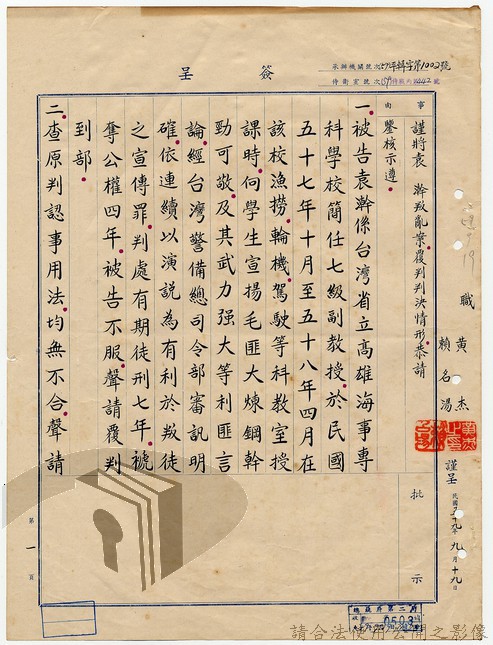 簽呈
承辦機關號次59年輯字第1002號
侍衛室號次
事由
謹將袁瀚叛亂案覆判判決情形恭請
鑒核示遵
一被告袁瀚係台灣省立高雄海事專
科學校簡任七級副教授於民國
五十七年十月至五十八年四月在
該校漁撈輪機駕駛等科教室授
課時向學生宣揚毛匪大煉鋼幹
勁可敬及其武力强大等利匪言
論經台灣警備總司令部審訊明
確依連續以演說為有利於叛徒
之宣傳罪判處有期徒刑七年褫
奪公權四年被告不服聲請覆判
到部
二查原判認事用法均無不合聲請
職黃杰
賴名湯
謹呈
民國五十九年九月十九日
批示
第一頁
總統府第二局
0503
請合法使用公開之影像